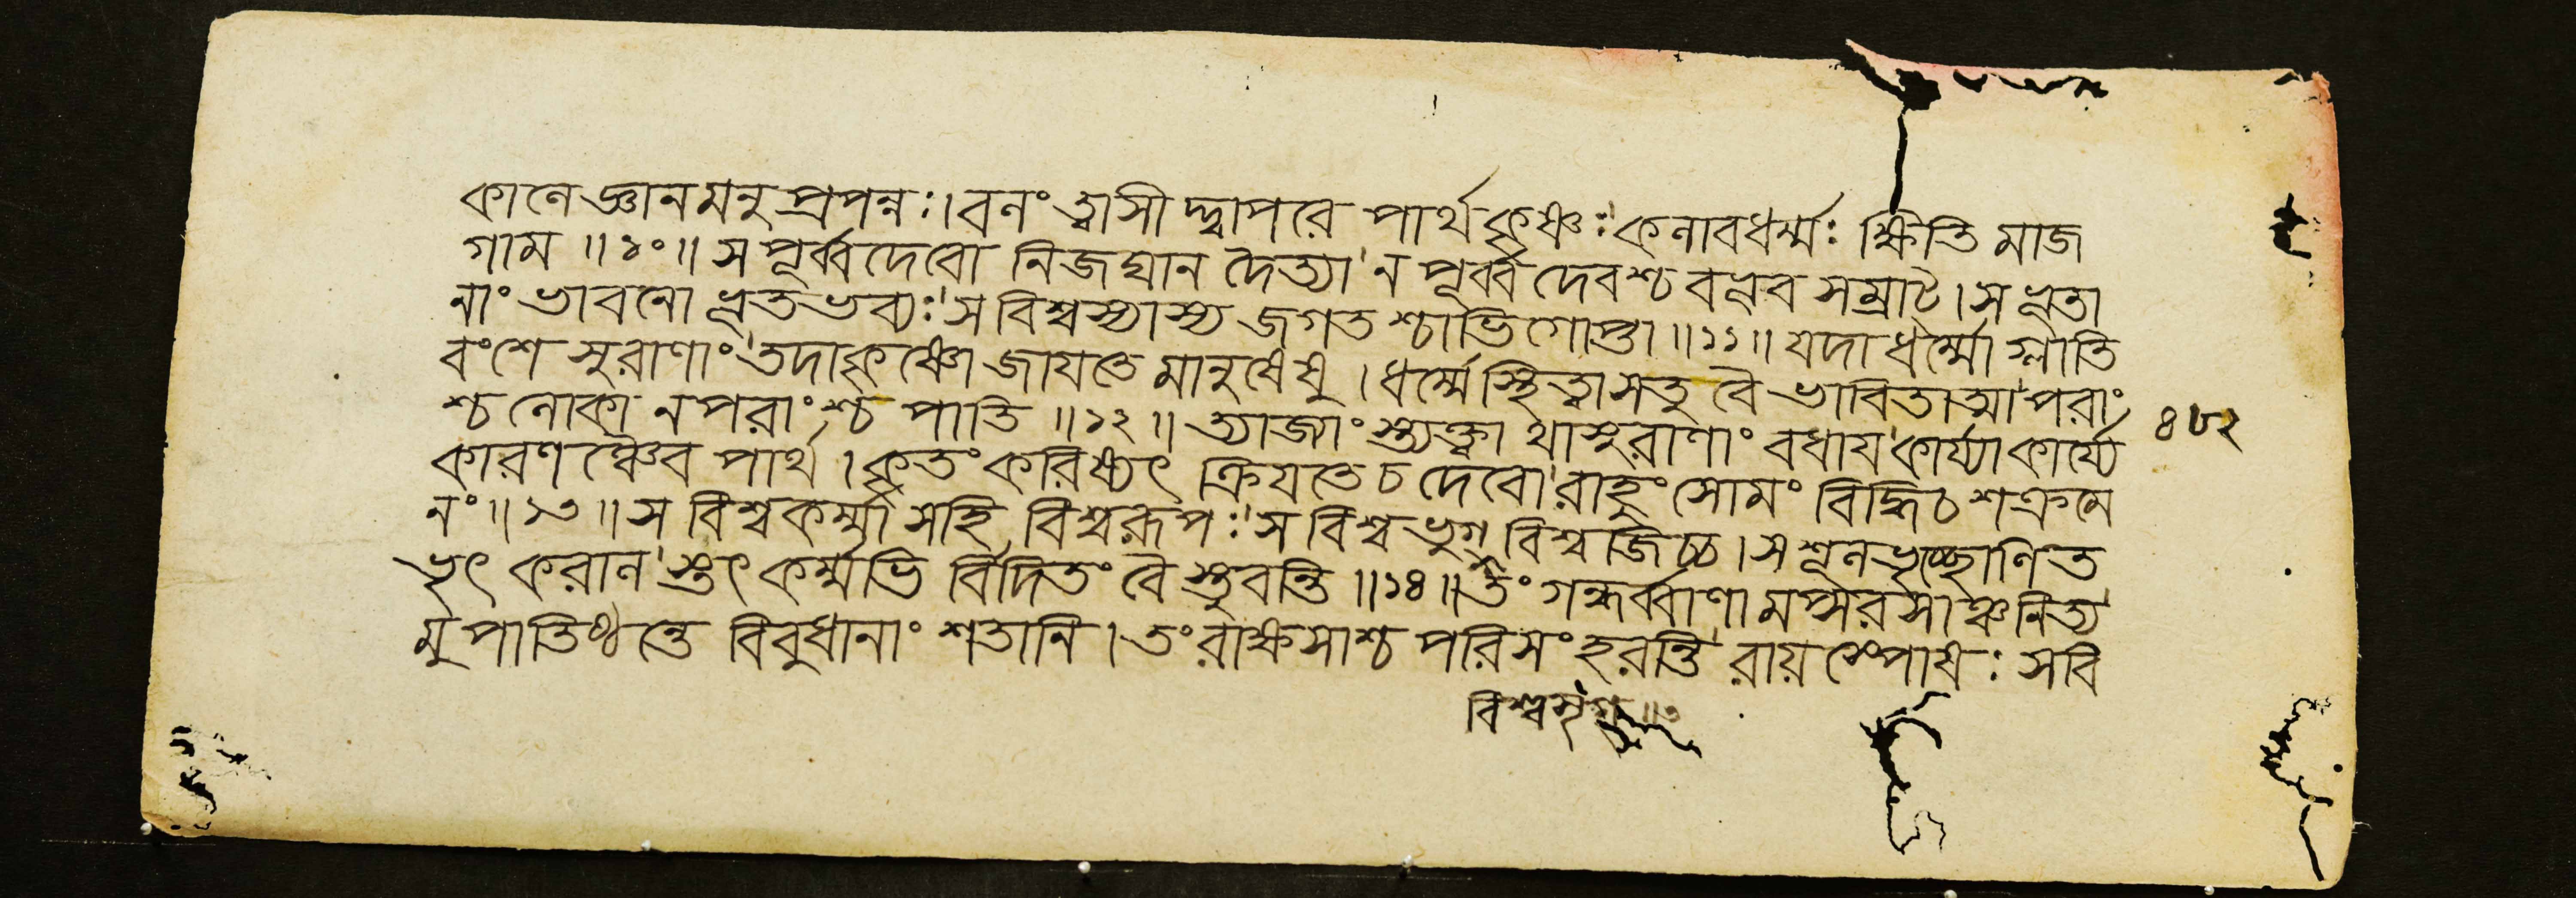 কালে জ্ঞানমনুপ্রপন্নঃ। বলং ত্বাসীদ্দ্বাপরে পার্থ কৃষ্ণঃ কলাবধর্ম্মঃ ক্ষিতিমাজ
গাম ॥১০॥ স পূর্ব্বদেবো নিজঘান দৈত্যান পূর্ব্বদেবশ্চ বভূব সম্রাট্। স ভূতা
নাং ভাবনো ভূতভব্যঃ স বিশ্বস্যাস্য জগতশ্চাভিগোপ্তা ॥১১॥ যদা ধর্ম্মো গ্লাতি
বংশে সুরাণাং তদা কৃষ্ণো জায়তে মানুষেষু। ধর্ম্মে স্থিত্বা স তু বৈ ভাবিতাত্মা পরাং
শ্চ লোকানপরাংশ্চ পাতি ॥১২॥ ত্যাজ্যাংস্ত্যক্ত্বাথাসুরাণাং বধায় কার্য্যাকার্য্যে
কারণঞ্চৈব পার্থ। কৃতং করিষ্যৎ ক্রিয়তে চ দেবো রাহুং সোমং বিদ্ধি চ শক্রমে
নং ॥১৩॥ স বিশ্বকর্ম্মা স হি বিশ্বরূপঃ স বিশ্বভুগ্ বিশ্বজিচ্চ। স শূলভৃচ্ছোণিত
ভৃৎ করালস্তৎ কর্ম্মভির্বিদিতং বৈ স্তুবন্তি ॥১৪॥ তং গন্ধর্ব্বাণামপ্সরসাঞ্চ নিত্য
মুপাতিষ্ঠন্তে বিবুধানাং শতানি। তং রাক্ষসাশ্চ পরিসংহরন্তি রায়স্পোষঃ স বি
৪৮২